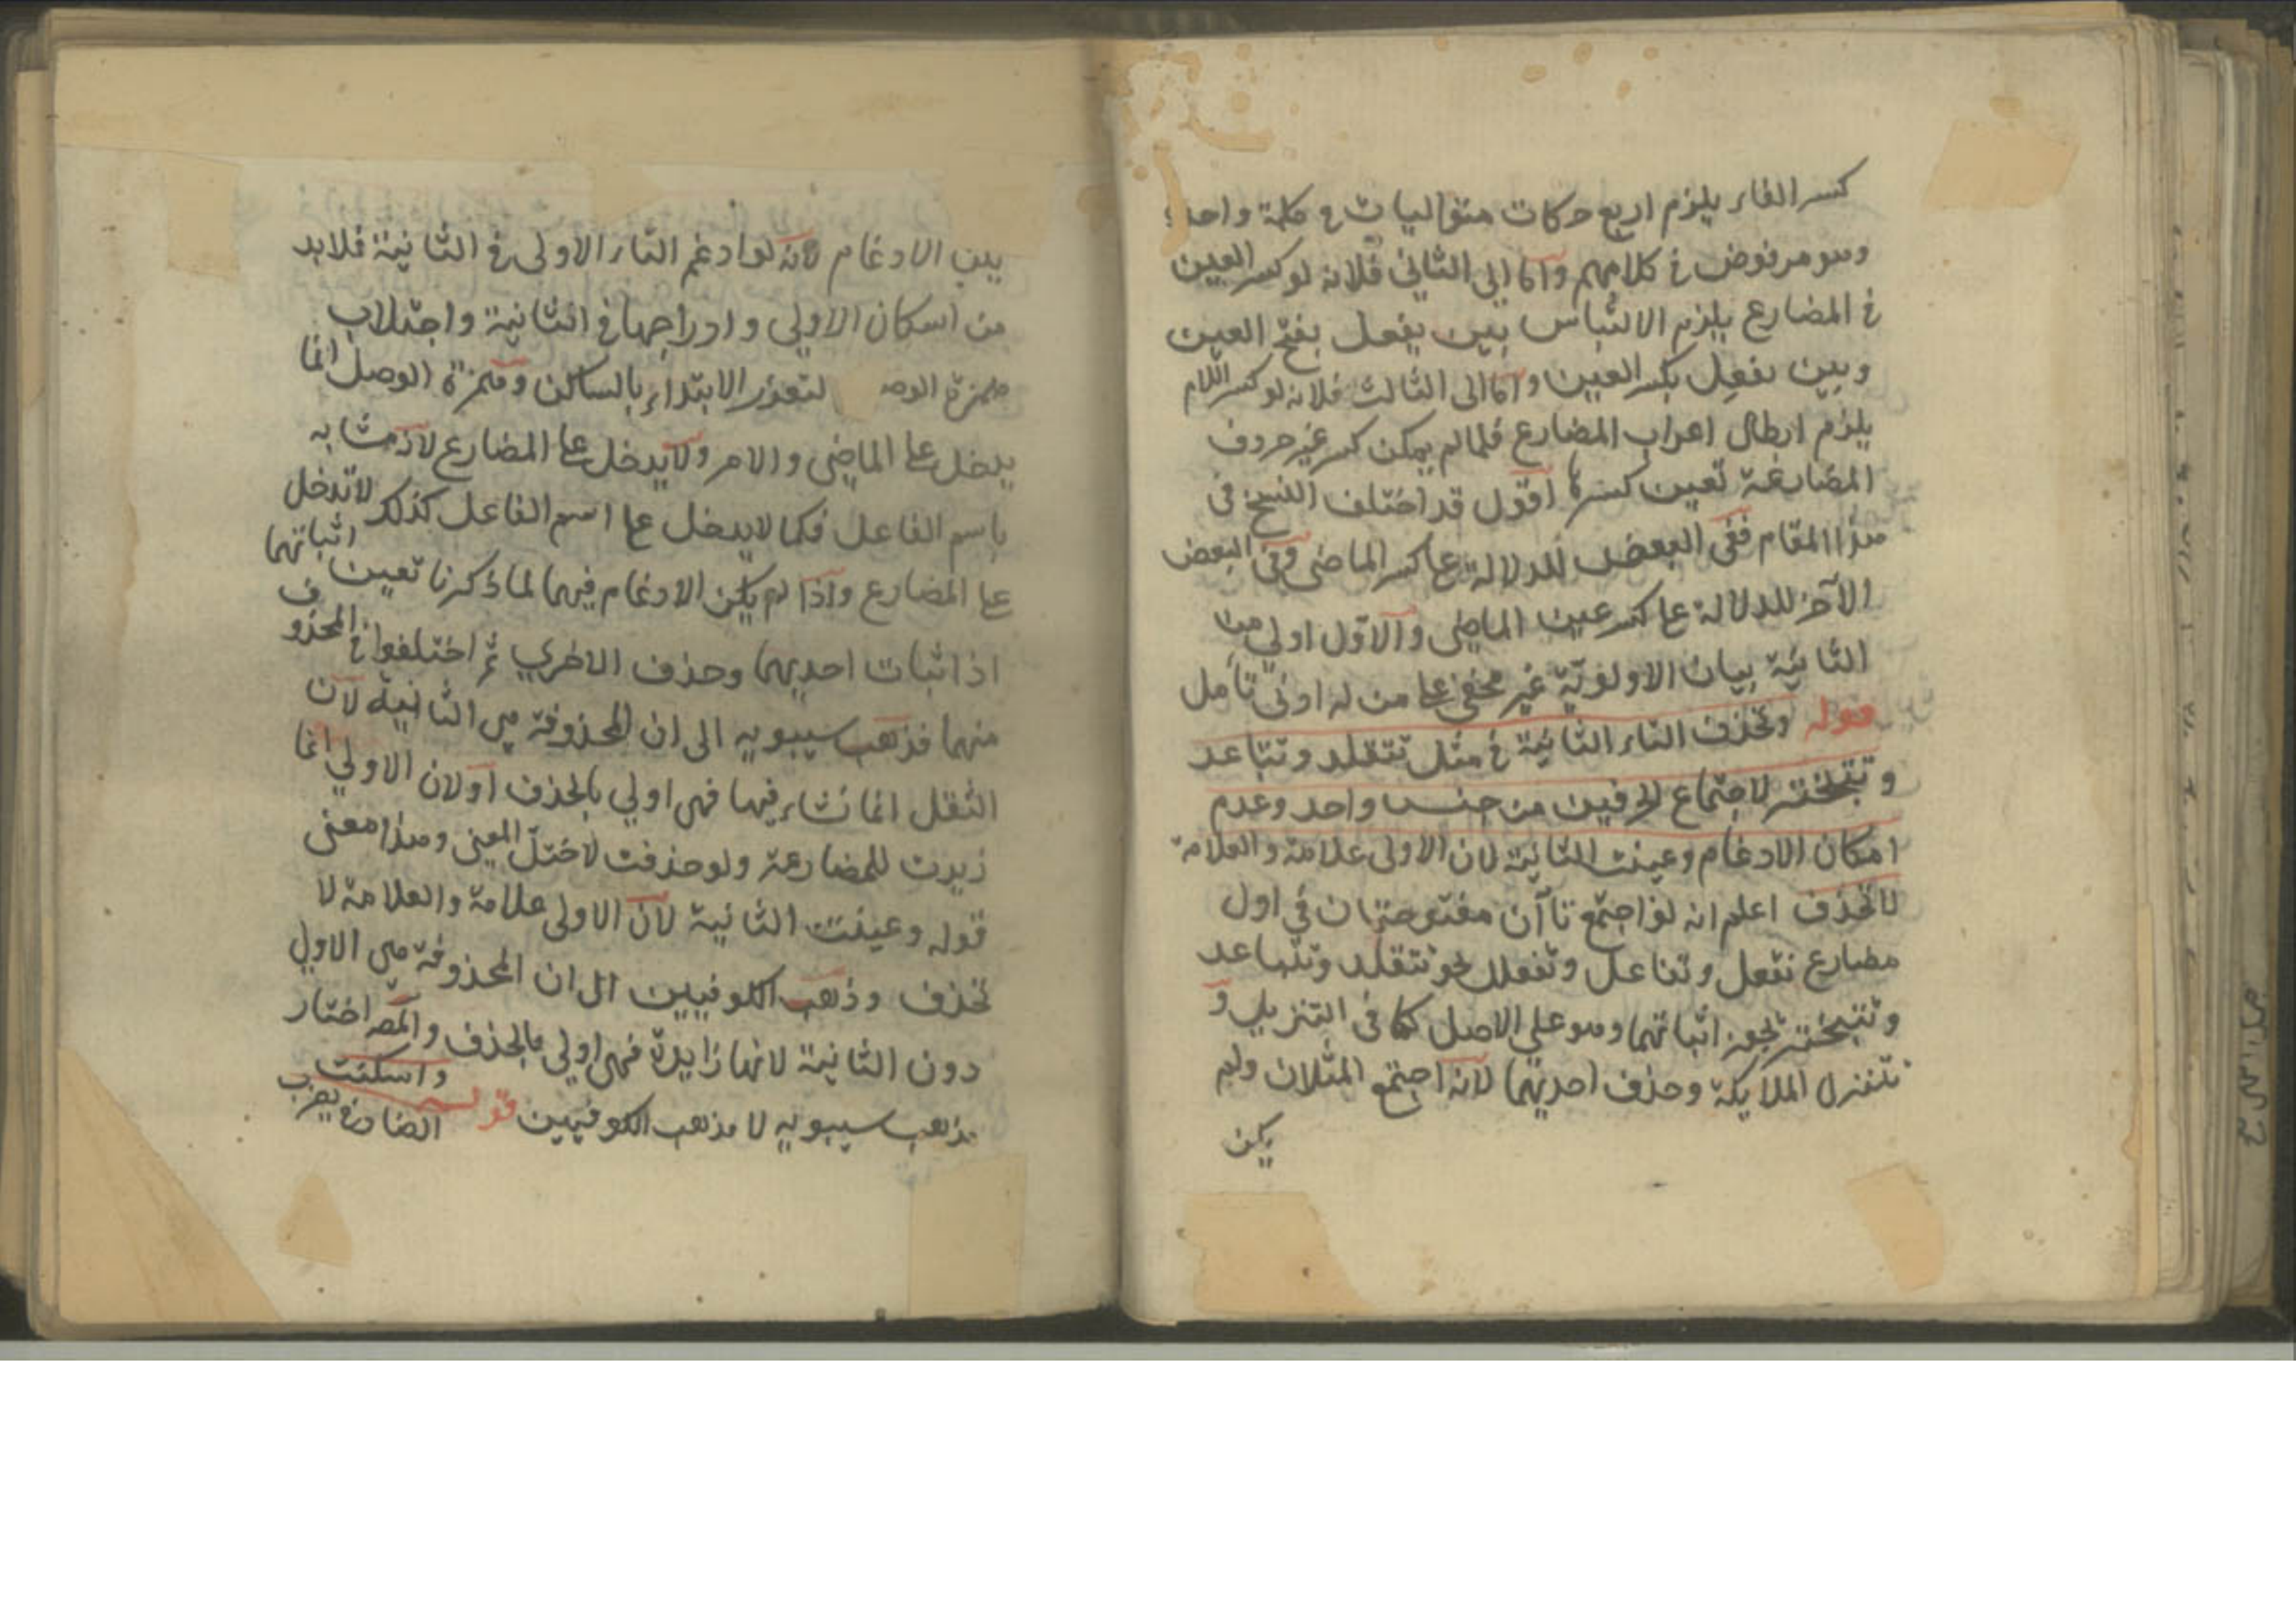 كسر الفاء يلزم اربع حركات متواليات في كلمة واحدة
وهو مرفوض في كلامهم واما الى الثاني فلانه لو كسر العين
في المضارع يلزم الالتباس بين يفعل بفتح العين
وبين يفعل بكسر العين واما الى الثالث فلانه لو كسر اللام
يلزم ابطال اعراب المضارع فلما لم يمكن كسر غير حروف
المضارعة تعين كسرها اقول قد اختلف النسخ في
هذا المقام ففي البعض للدلالة على كسر الماضى وفي البعض
الآخر للدلالة على كسر عين الماضى والاول اولى من
الثانية بيان الاولوية غير مخفي على من له ادنى تأمل
قوله وتحذف التاء الثانية في مثل تتقلد وتتباعد
وتتبختر لاجتماع الحرفين من جنس واحد وعدم
امكان الادغام وعينت الثانية لان الاولى علامة والعلامة
لا تحذف اعلم انه لو اجتمع تاآن مفتوحتان في اول
مضارع تفعل وتفاعل وتفعلل نحو تتقلد وتتباعد
وتتبختر يجوز اثباتهما وهو على الاصل كما في التنزيل و
تتنزل الملايكة وحذف احديهما لانه اجتمع المثلان ولم
يكن
يبن الادغام لانه لو ادغم التاء الاولى في الثانية فلابد
من اسكان الاولى وادراجها في الثانية واجتلاب
همزة الوصـ لتعذر الابتداء بالساكن وهمزة الوصل انما
يدخل على الماضى والامر ولا يدخل على المضارع لانه مشابه
باسم الفاعل فكما لا يدخل على اسم الفاعل كذلك لا تدخل
على المضارع واذا لم يكن الادغام فيهما لما ذكرنا تعين اثباتهما
اذ اثبات احديهما وحذف الاخرى ثم اختلفوا في المحذوف
منهما فذهب سيبويه الى ان المحذوفة هي الثانية لان
الثقل انما نشاء فيها فهى اولى بالحذف او لان الاولى انما
زيدت للمضارعة ولو حذفت لاختل المعنى وهذا معنى
قوله وعينت الثانية لان الاولى علامة والعلامة لا
تحذف وذهب الكوفيين الى ان المحذوفة هي الاولى
دون الثانية لانها زايدة فهى اولى بالحذف والمصـ اختار
مذهب سيبويه لا مذهب الكوفيين قوله واسكنت
الضاد في يضرب